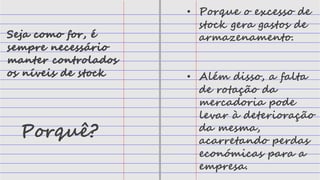 Seja como for, é
sempre necessário
manter controlados
os níveis de stock
Porquê?
• Porque o excesso de
stock gera gastos de
armazenamento.
• Além disso, a falta
de rotação da
mercadoria pode
levar à deterioração
da mesma,
acarretando perdas
económicas para a
empresa.